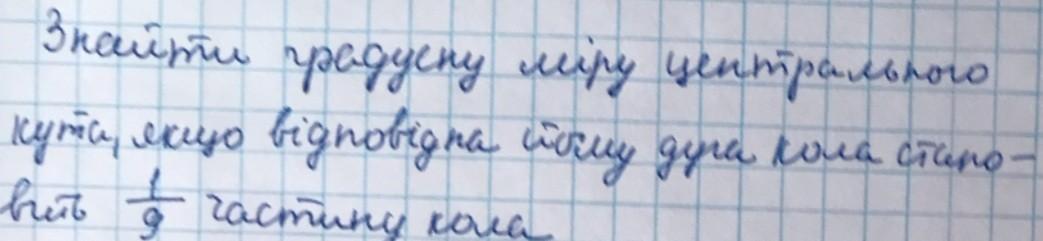 Знайти градусну міру центрального
кута, якщо відповідна йому дуга кола стано-
вить 1/9 частину кола